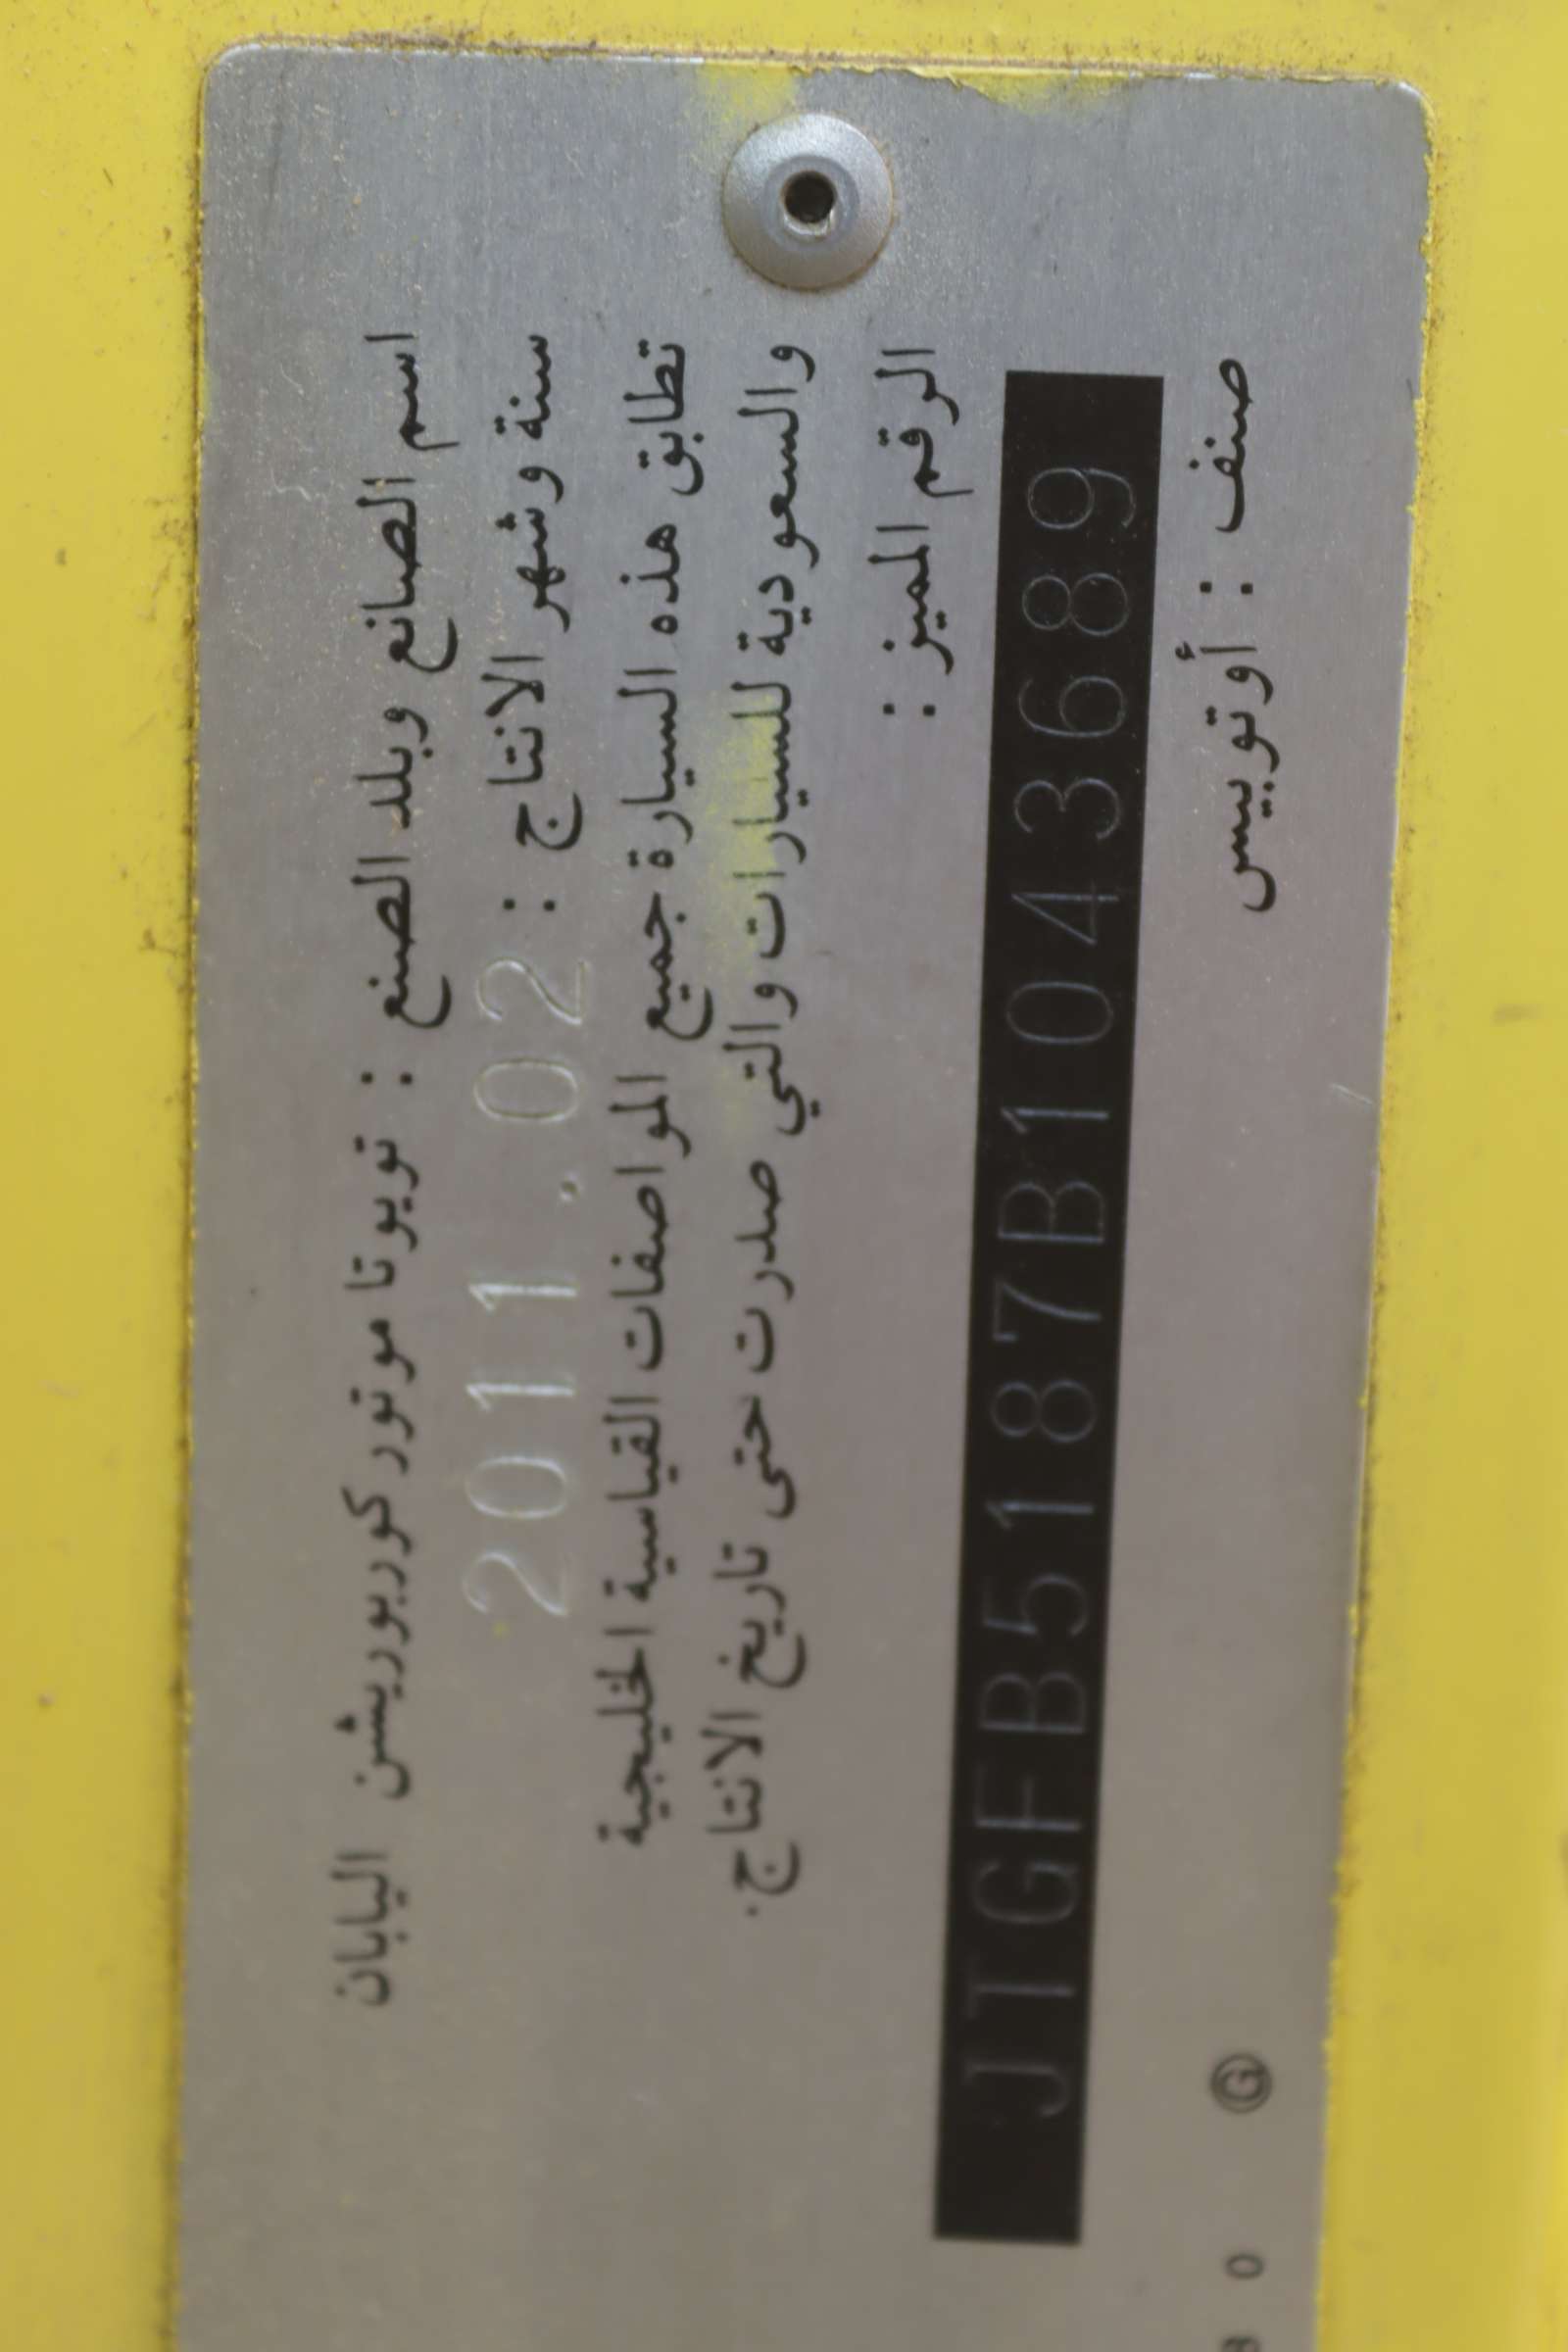 اسم الصانع وبلد الصنع : تويوتا موتور كوربوريشن اليابان
سنة وشهر الانتاج : 2011.02
تطابق هذه السيارة جميع المواصفات القياسية الخليجية
والسعودية للسيارات والتي صدرت حتى تاريخ الانتاج.
الرقم المميز :
JTGFB5187B1043689
صنف : أوتوبيس
0 Ⓖ